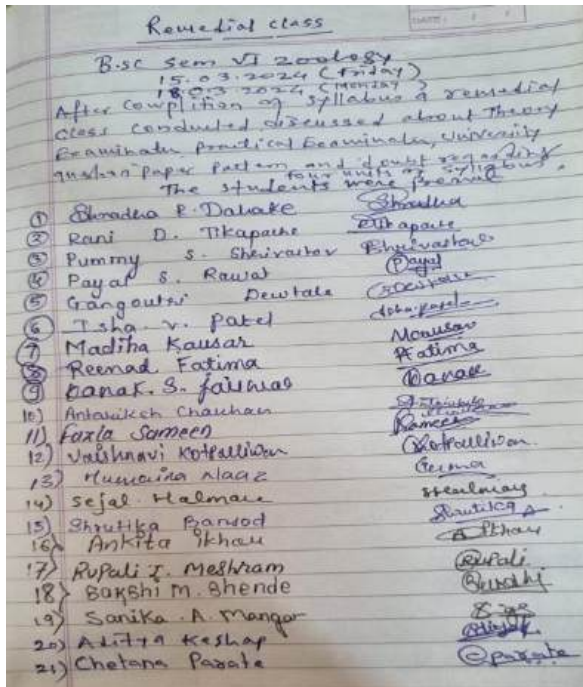 Remedial class
DATE: / /
B.sc Sem VI Zoology
15.03.2024 (Friday)
18.03.2024 (Monday)
After complition of Syllabus a remedial
class conducted discussed about Theory
Examination, practical Examination, University
question paper pattern and doubt regarding
four units of syllabus.
The students were present
① Shradha P. Dahake Shradha
② Rani D. Tikapache
③ Pummy S. Shrivastav Shrivastav
④ Payal S. Rawat Payal
⑤ Gangoutri Dewtale
⑥ Isha. v. Patel Isha.patel
⑦ Madiha Kausar Mkausar
⑧ Reemad Fatima Fatima
⑨ Kanak. S. Jaiswal Kanak
10) Antariksh Chauhan
11) Faxla Sameen Sameen
12) Vaishnavi Kotpalliwar Kotpalliwar
13) Humaira Naaz
14) Sejal Halmare
15) Shrutika Bansod Shrutika
16) Ankita Ikhar AIkhar
17) Rupali I. Meshram Rupali
18) Sakshi M. Shende
19) Sanika. A. Mangar
20) Aditya Keshap
21) Chetana Parate Cparate